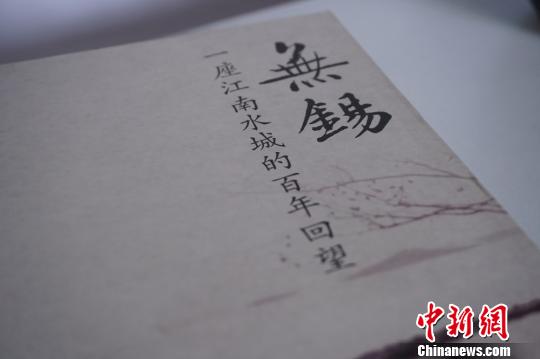 無錫
一座江南水城的百年回望
中新网
Chinanews.com